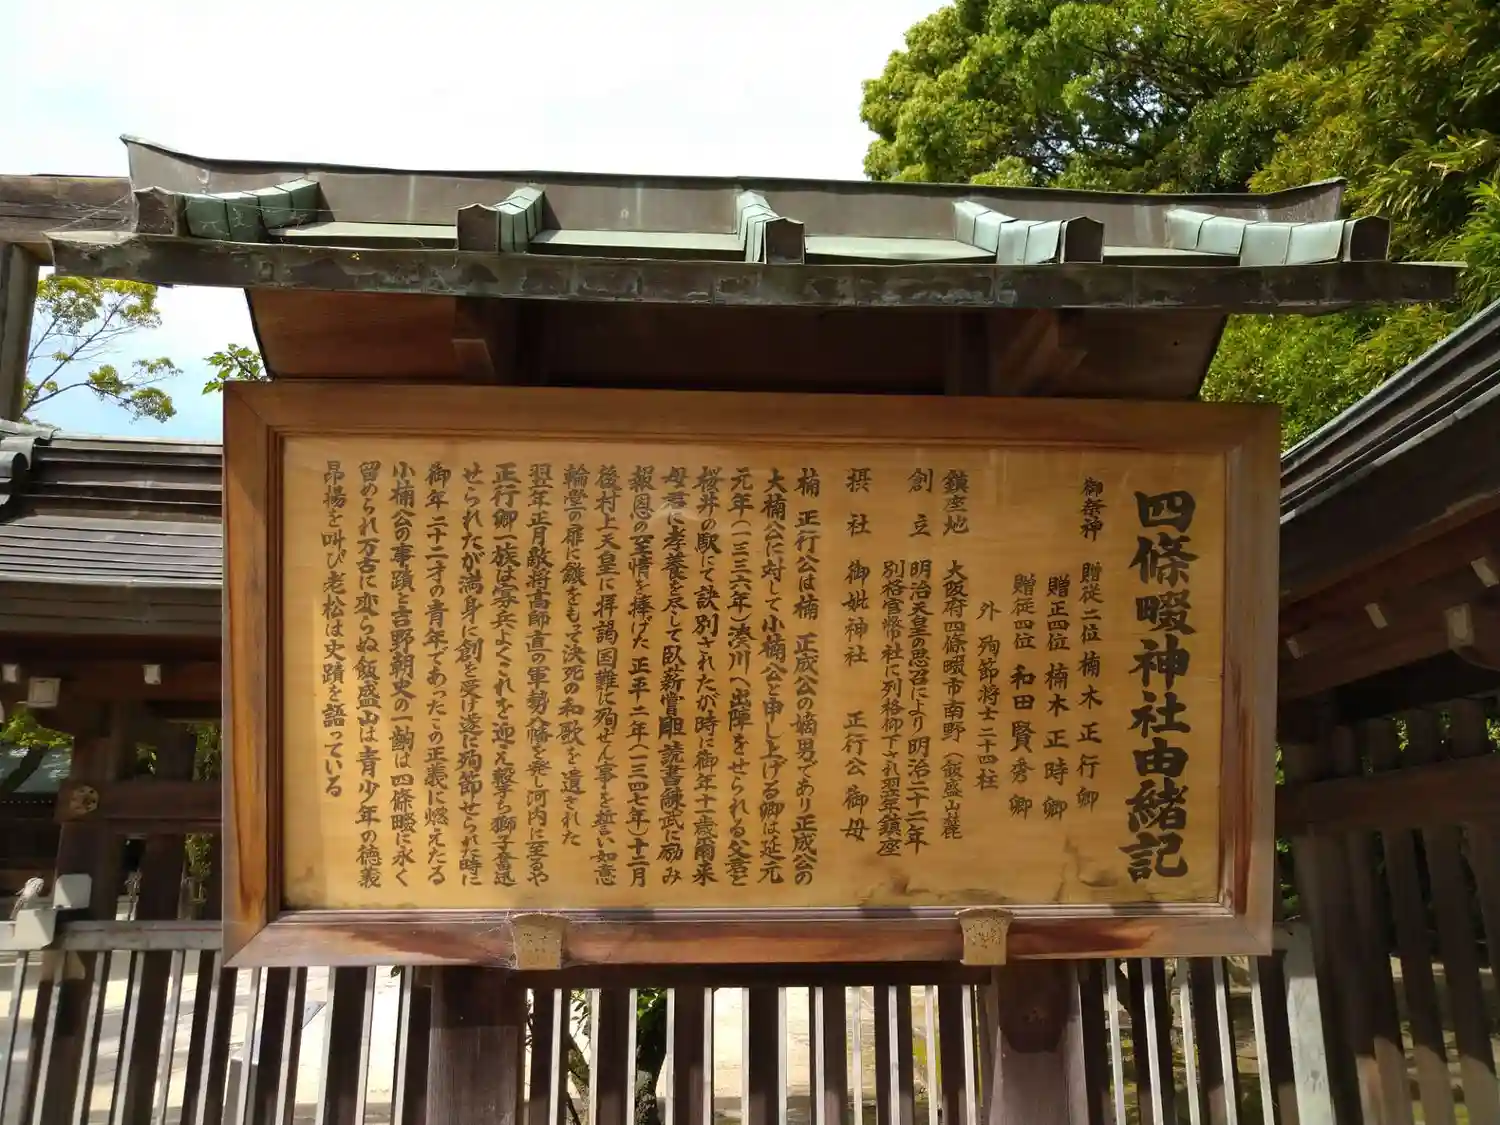 四條畷神社由緒記
御祭神 贈従二位楠木正行卿
贈正四位楠木正時卿
贈従四位和田賢秀卿
外殉節将士二十四柱
鎮座地 大阪府四條畷市南野(飯盛山麓)
創立 明治天皇の思召により明治二十二年
別格官幣社に列格仰下され翌年鎮座
摂社 御妣神社 正行公御母
楠正行公は楠正成公の嫡男であり正成公の
大楠公に対して小楠公と申し上げる卿は延元
元年(一三三六年)湊川へ出陣をせられる父君と
桜井の駅にて訣別されたが時に御年十一歳爾来
母君に孝養を尽して臥薪嘗胆読書錬武に励み
報恩の至情を捧げた正平二年(一三四七年)十二月
後村上天皇に拝謁国難に殉ぜん事を誓い如意
輪堂の扉に鏃をもって決死の和歌を遺された
翌年正月敵将高師直の軍勢八幡を発し河内に至るや
正行卿一族は寡兵よくこれを迎え撃ち獅子奮迅
せられたが満身に創を受け遂に殉節せられた時に
御年二十二才の青年であったこの正義に燃えたる
小楠公の事蹟と吉野朝史の一齣は四條畷に永く
留められ万古に変らぬ飯盛山は青少年の徳義
昂揚を叫び老松は史蹟を語っている